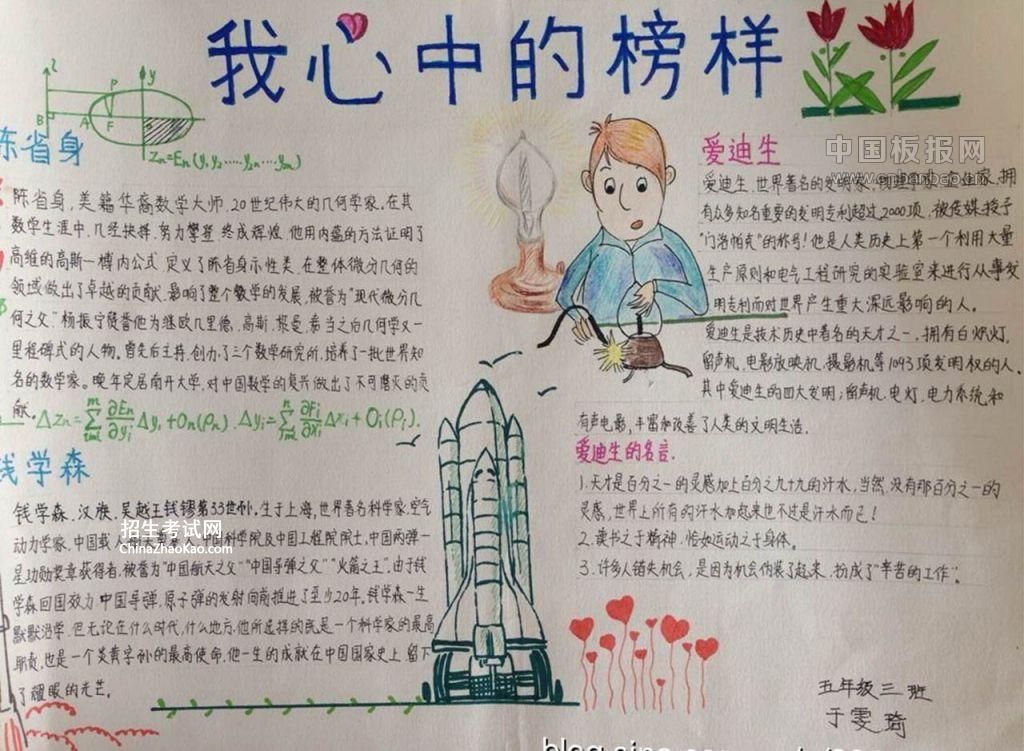 我心中的榜样
陈省身
Zn=En(y1,y2,…,y2n…ym)
陈省身,美籍华裔数学大师,20世纪伟大的几何学家。在其
数学生涯中,几经抉择,努力攀登,终成辉煌。他用内蕴的方法证明了
高维的高斯一博内公式,定义了陈省身示性类,在整体微分几何的
领域做出了卓越的贡献,影响了整个数学的发展,被誉为"现代微分几
何之父"。杨振宁赞誉他为继欧几里德,高斯,黎曼,嘉当之后几何学又一
里程碑式的人物。曾先后主持,创办了三个数学研究所,培养了一批世界知
名的数学家。晚年定居南开大学,对中国数学的复兴做出了不可磨灭的贡
献。
钱学森
钱学森,汉族,吴越王钱镠第33世孙。生于上海,世界著名科学家,空气
动力学家,中国载人
中国科学院及中国工程院院士,中国两弹一
星功勋奖章获得者,被誉为"中国航天之父""中国导弹之父""火箭之王"。由于钱
学森回国效力,中国导弹,原子弹的发射向前推进了至少20年。钱学森一生
默默治学,但无论在什么时代,什么地方,他所选择的既是一个科学家的最高
职责,也是一个炎黄子孙的最高使命。他一生的成就在中国国家史上,留下
了耀眼的光芒。
招生考试网
ChinaZhaoKao.com
中国板报网
爱迪生
爱迪生,世界著名的发明家,物理学家,企业家,拥
有众多知名重要的发明专利超过2000项,被传媒授予
"门洛帕克"的称号!他是人类历史上第一个利用大量
生产原则和电气工程研究的实验室来进行从事发
明专利而对世界产生重大深远影响的人。
爱迪生是技术历史中著名的天才之一,拥有白炽灯,
留声机,电影放映机,摄影机等1093项发明权的人。
其中爱迪生的四大发明;留声机,电灯,电力系统和
有声电影,丰富和改善了人类的文明生活。
爱迪生的名言。
1.天才是百分之一的灵感加上百分之九十九的汗水,当然,没有那百分之一的
灵感,世界上所有的汗水加起来也不过是汗水而已!
2.读书之于精神,恰如运动之于身体。
3.许多人错失机会,是因为机会伪装了起来,扮成了"辛苦的工作"。
五年级三班
于雯琦